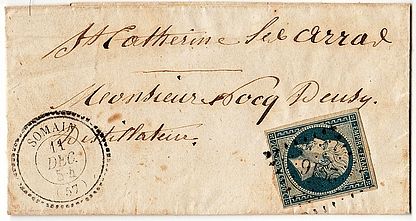 St Catherine Les Arras
Monsieur Hocq Deusy,
Distillateur
SOMAIN
11
DEC.
54
(57)